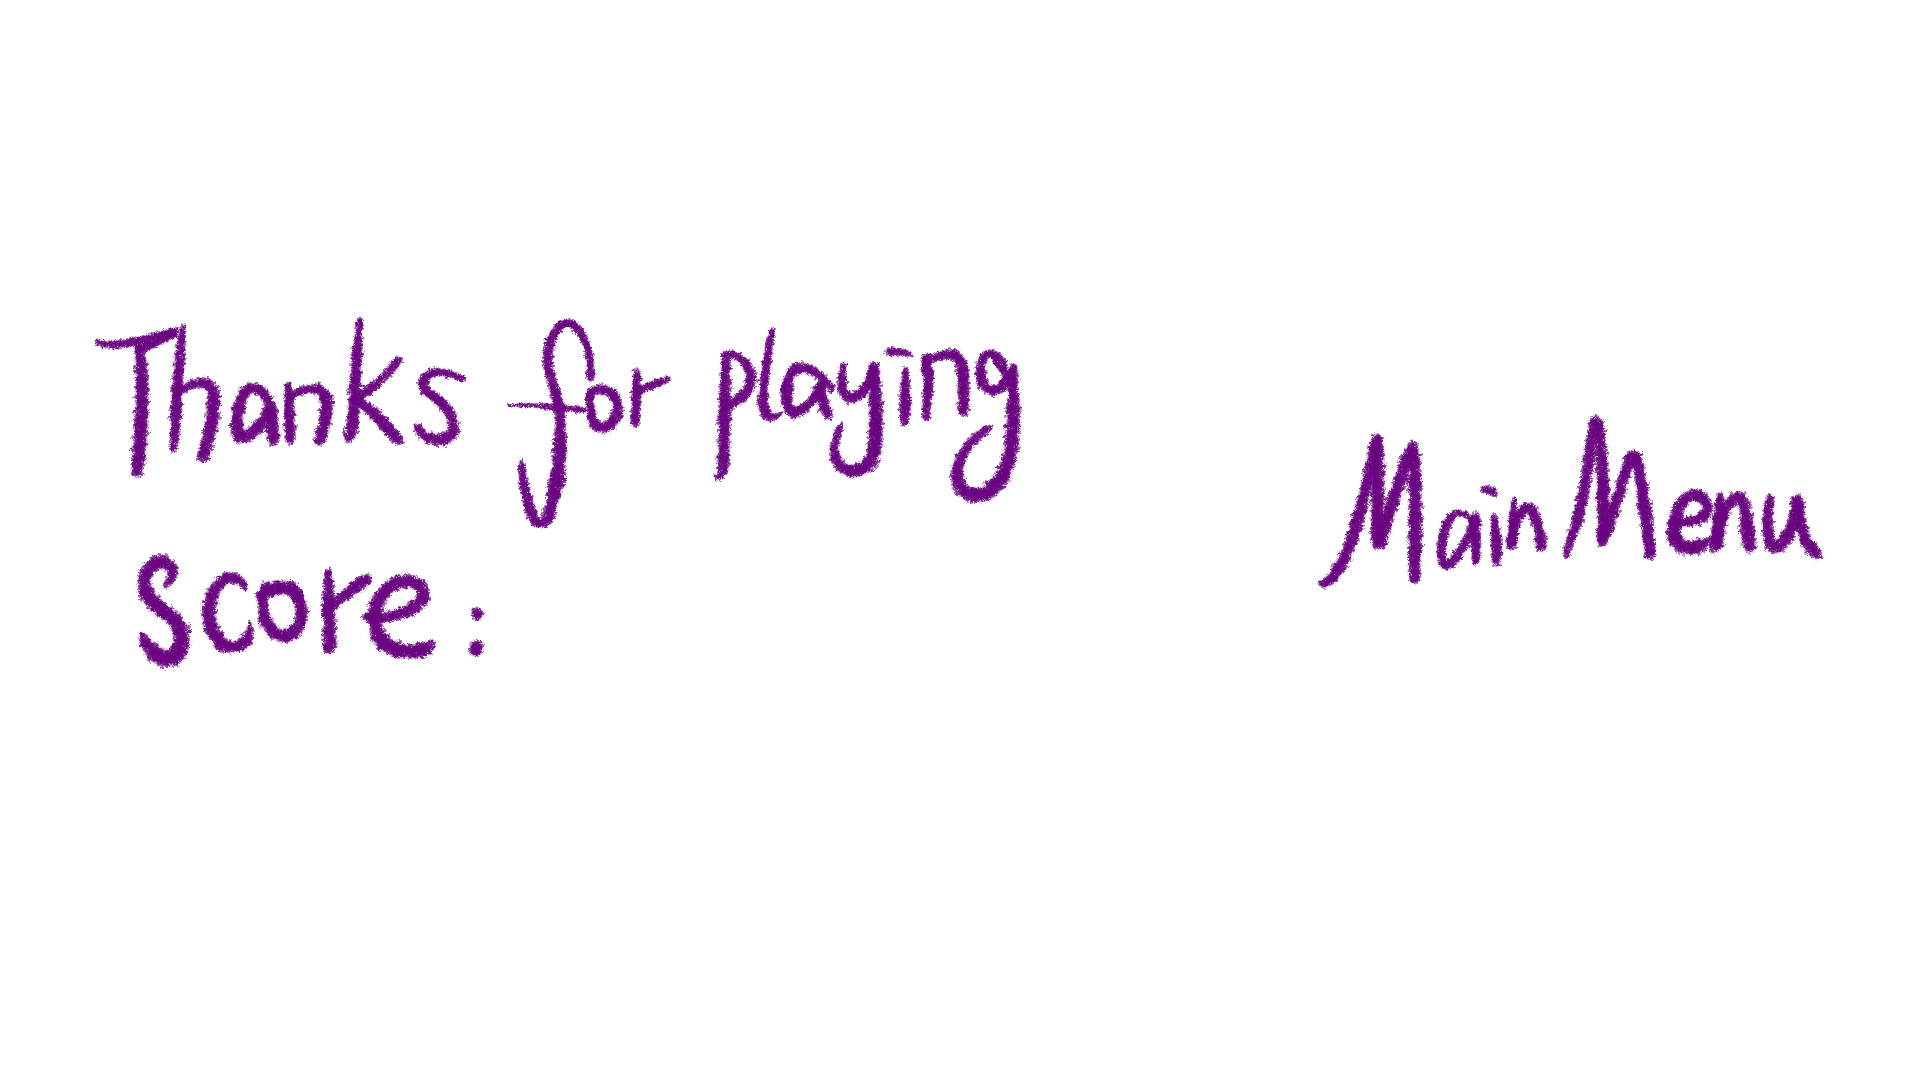 Thanks for playing
Score:
Main Menu